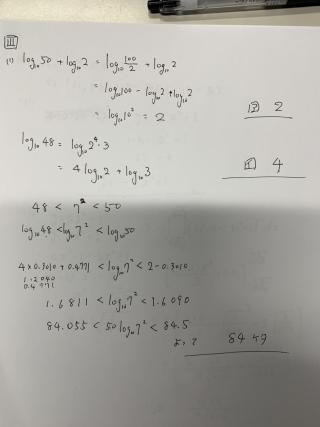 Ⅲ
(1) log₁₀50 + log₁₀2 = log₁₀ 100/2 + log₁₀2
= log₁₀100 - log₁₀2 + log₁₀2
= log₁₀10² = 2
2
log₁₀48 = log₁₀2⁴·3
= 4log₁₀2 + log₁₀3
4
48 < 7² < 50
log₁₀48 < log₁₀7² < log₁₀50
4×0.3010 + 0.4771 < log₁₀7² < 2 - 0.3010
1.2040
0.4771
1.6811 < log₁₀7² < 1.6090
84.055 < 50log₁₀7² < 84.5
より 84ケタ